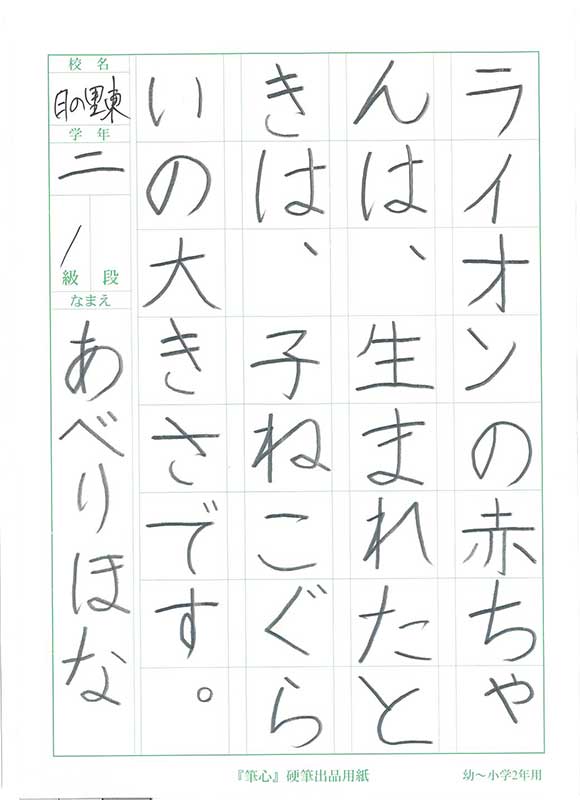 ライオンの赤ちゃ
んは、生まれたと
きは、子ねこぐら
いの大きさです。
校名
日の里東
学年
二
級 段
/
なまえ
あべりほな
『筆心』硬筆出品用紙
幼〜小学2年用